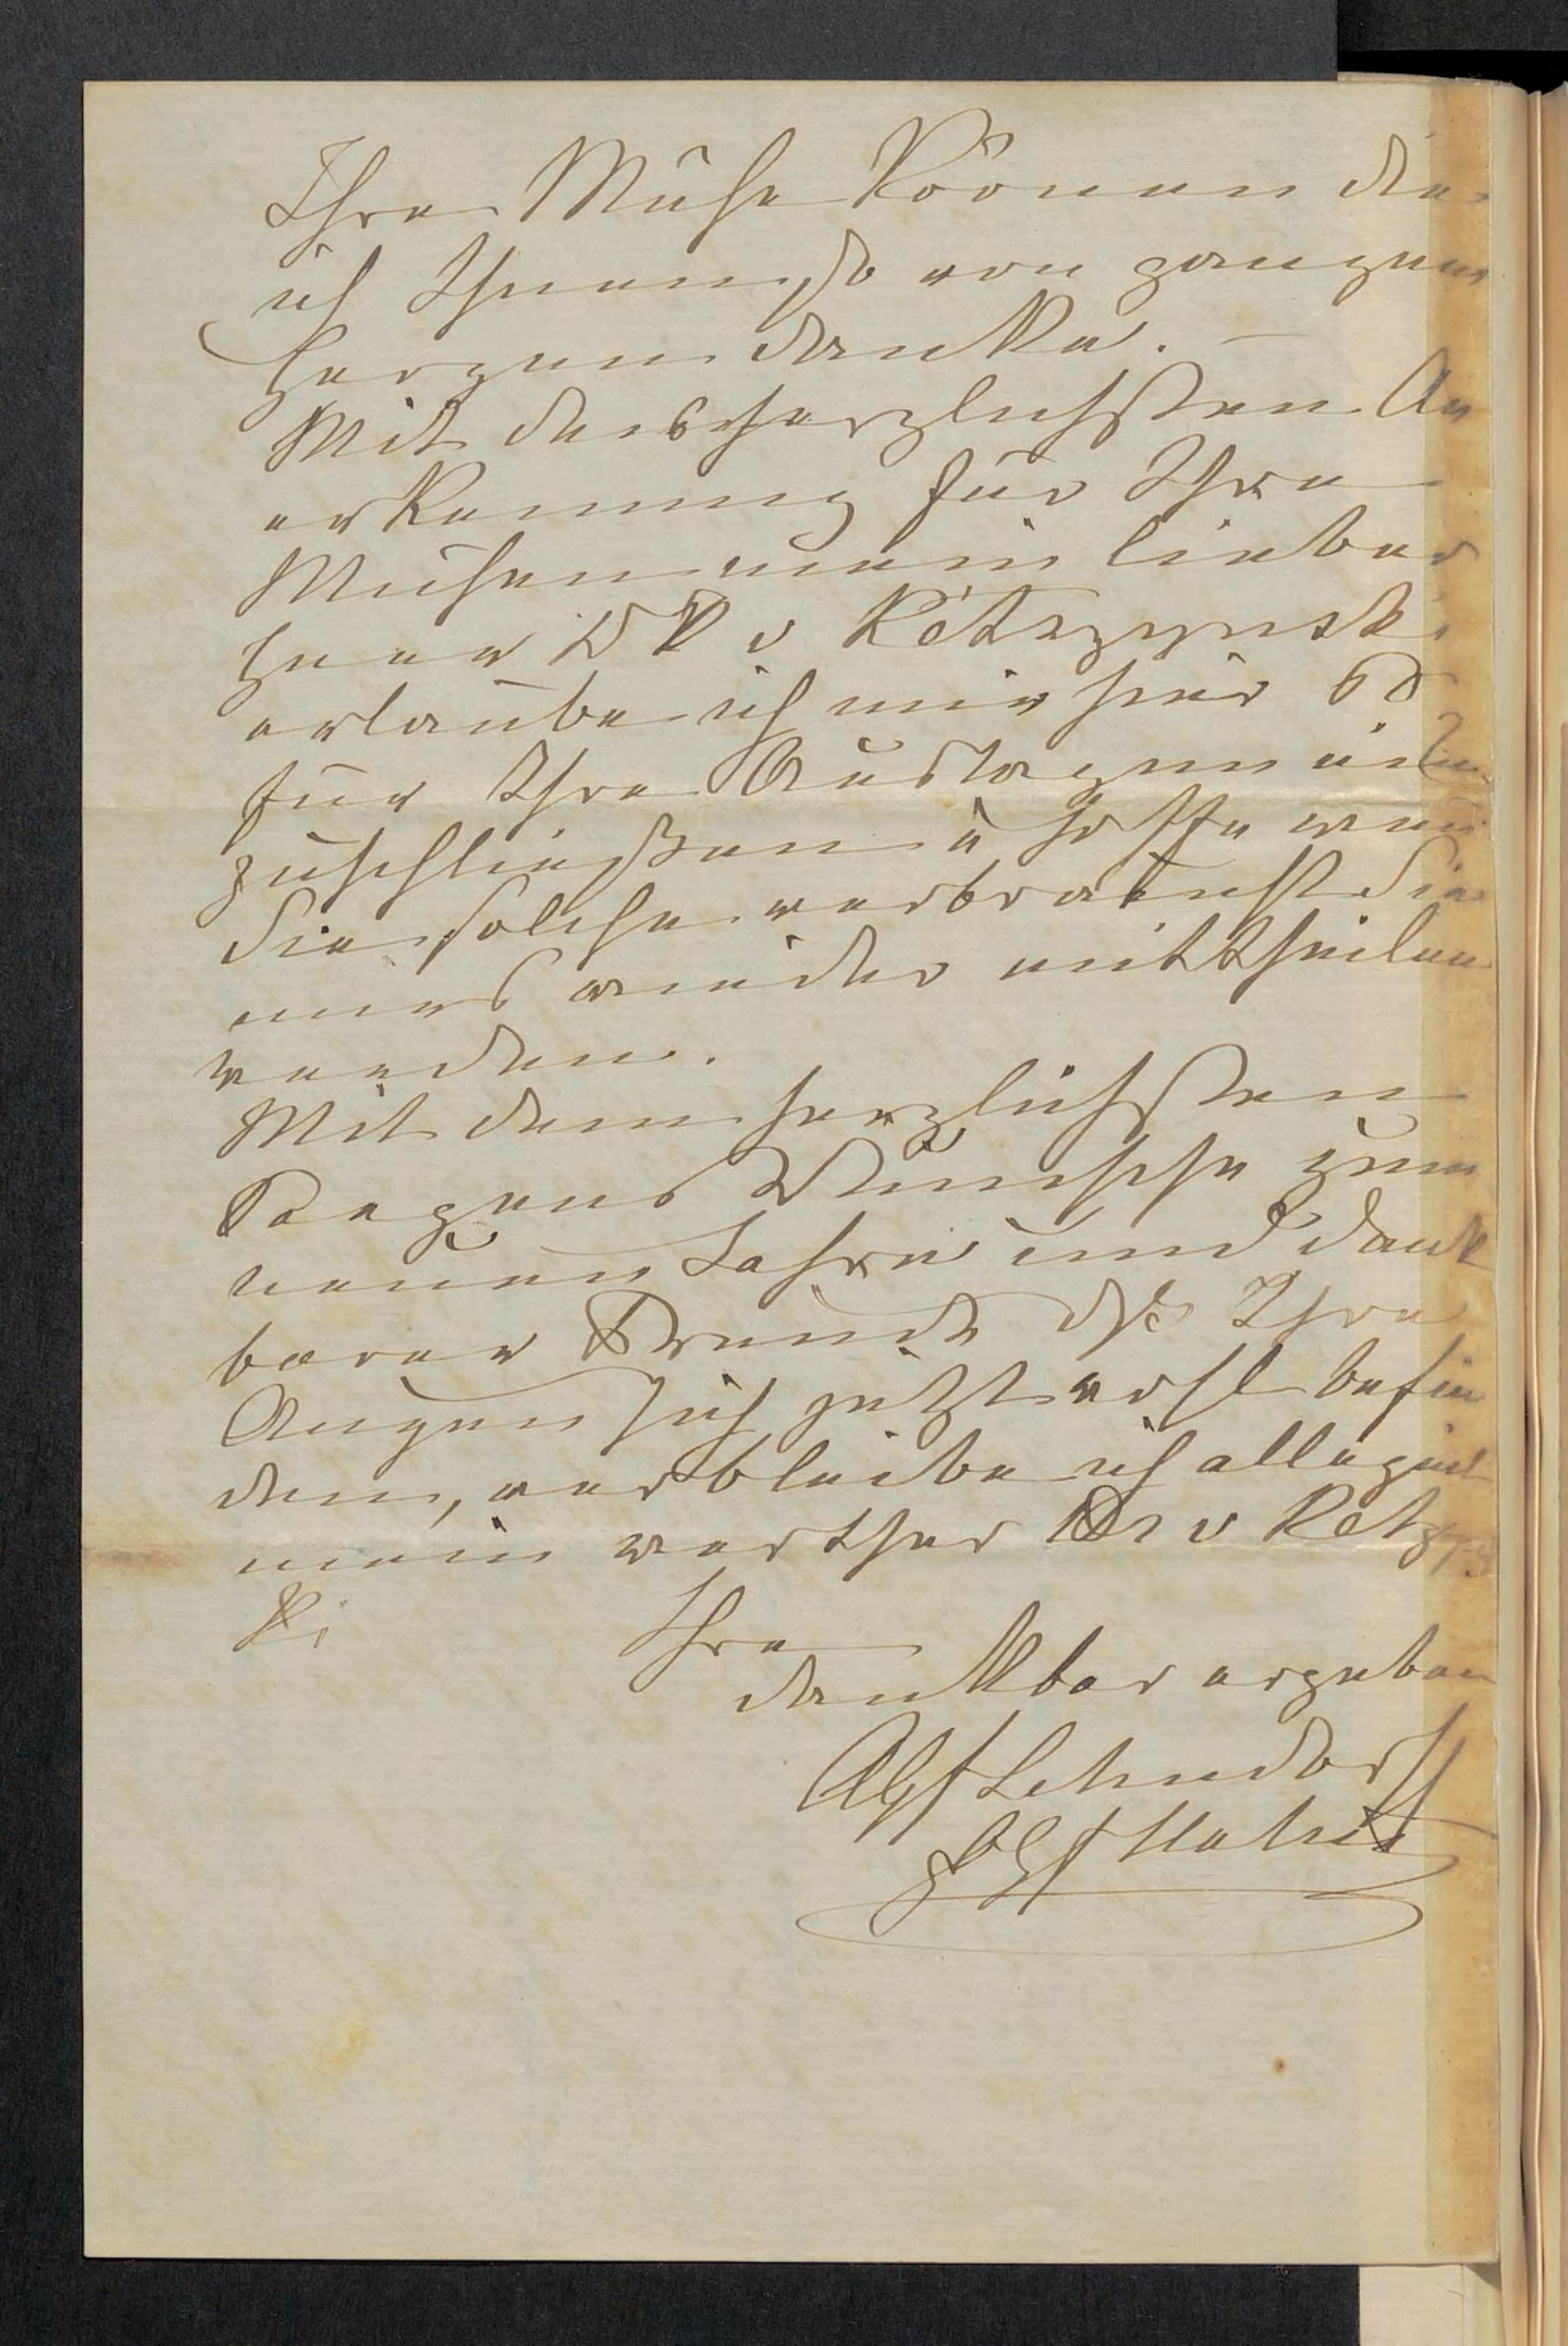 Ihre Mühe krönen die
ich Ihnen so von ganzem
Herzen danke. —
Mit der herzlichsten An
erkennung für Ihre
Mühen mein lieber
Herr DR v Kėtrzynski
erlaube ich mir hier
für Ihre Auslagen
zuschließen u hoffe wenn
Sie solche verbraucht Sie
uns wieder mittheilen
werden.
Mit dem herzlichsten
Segens Wunsche zum
neuen Jahre und dank
barer Freude dß Ihre
Augen sich jetzt wohl befin
den, verbleibe ich allezeit
mein werther Dr v Kėtrzyns
ki
Ihre
dankbar ergeben
Lehndorff